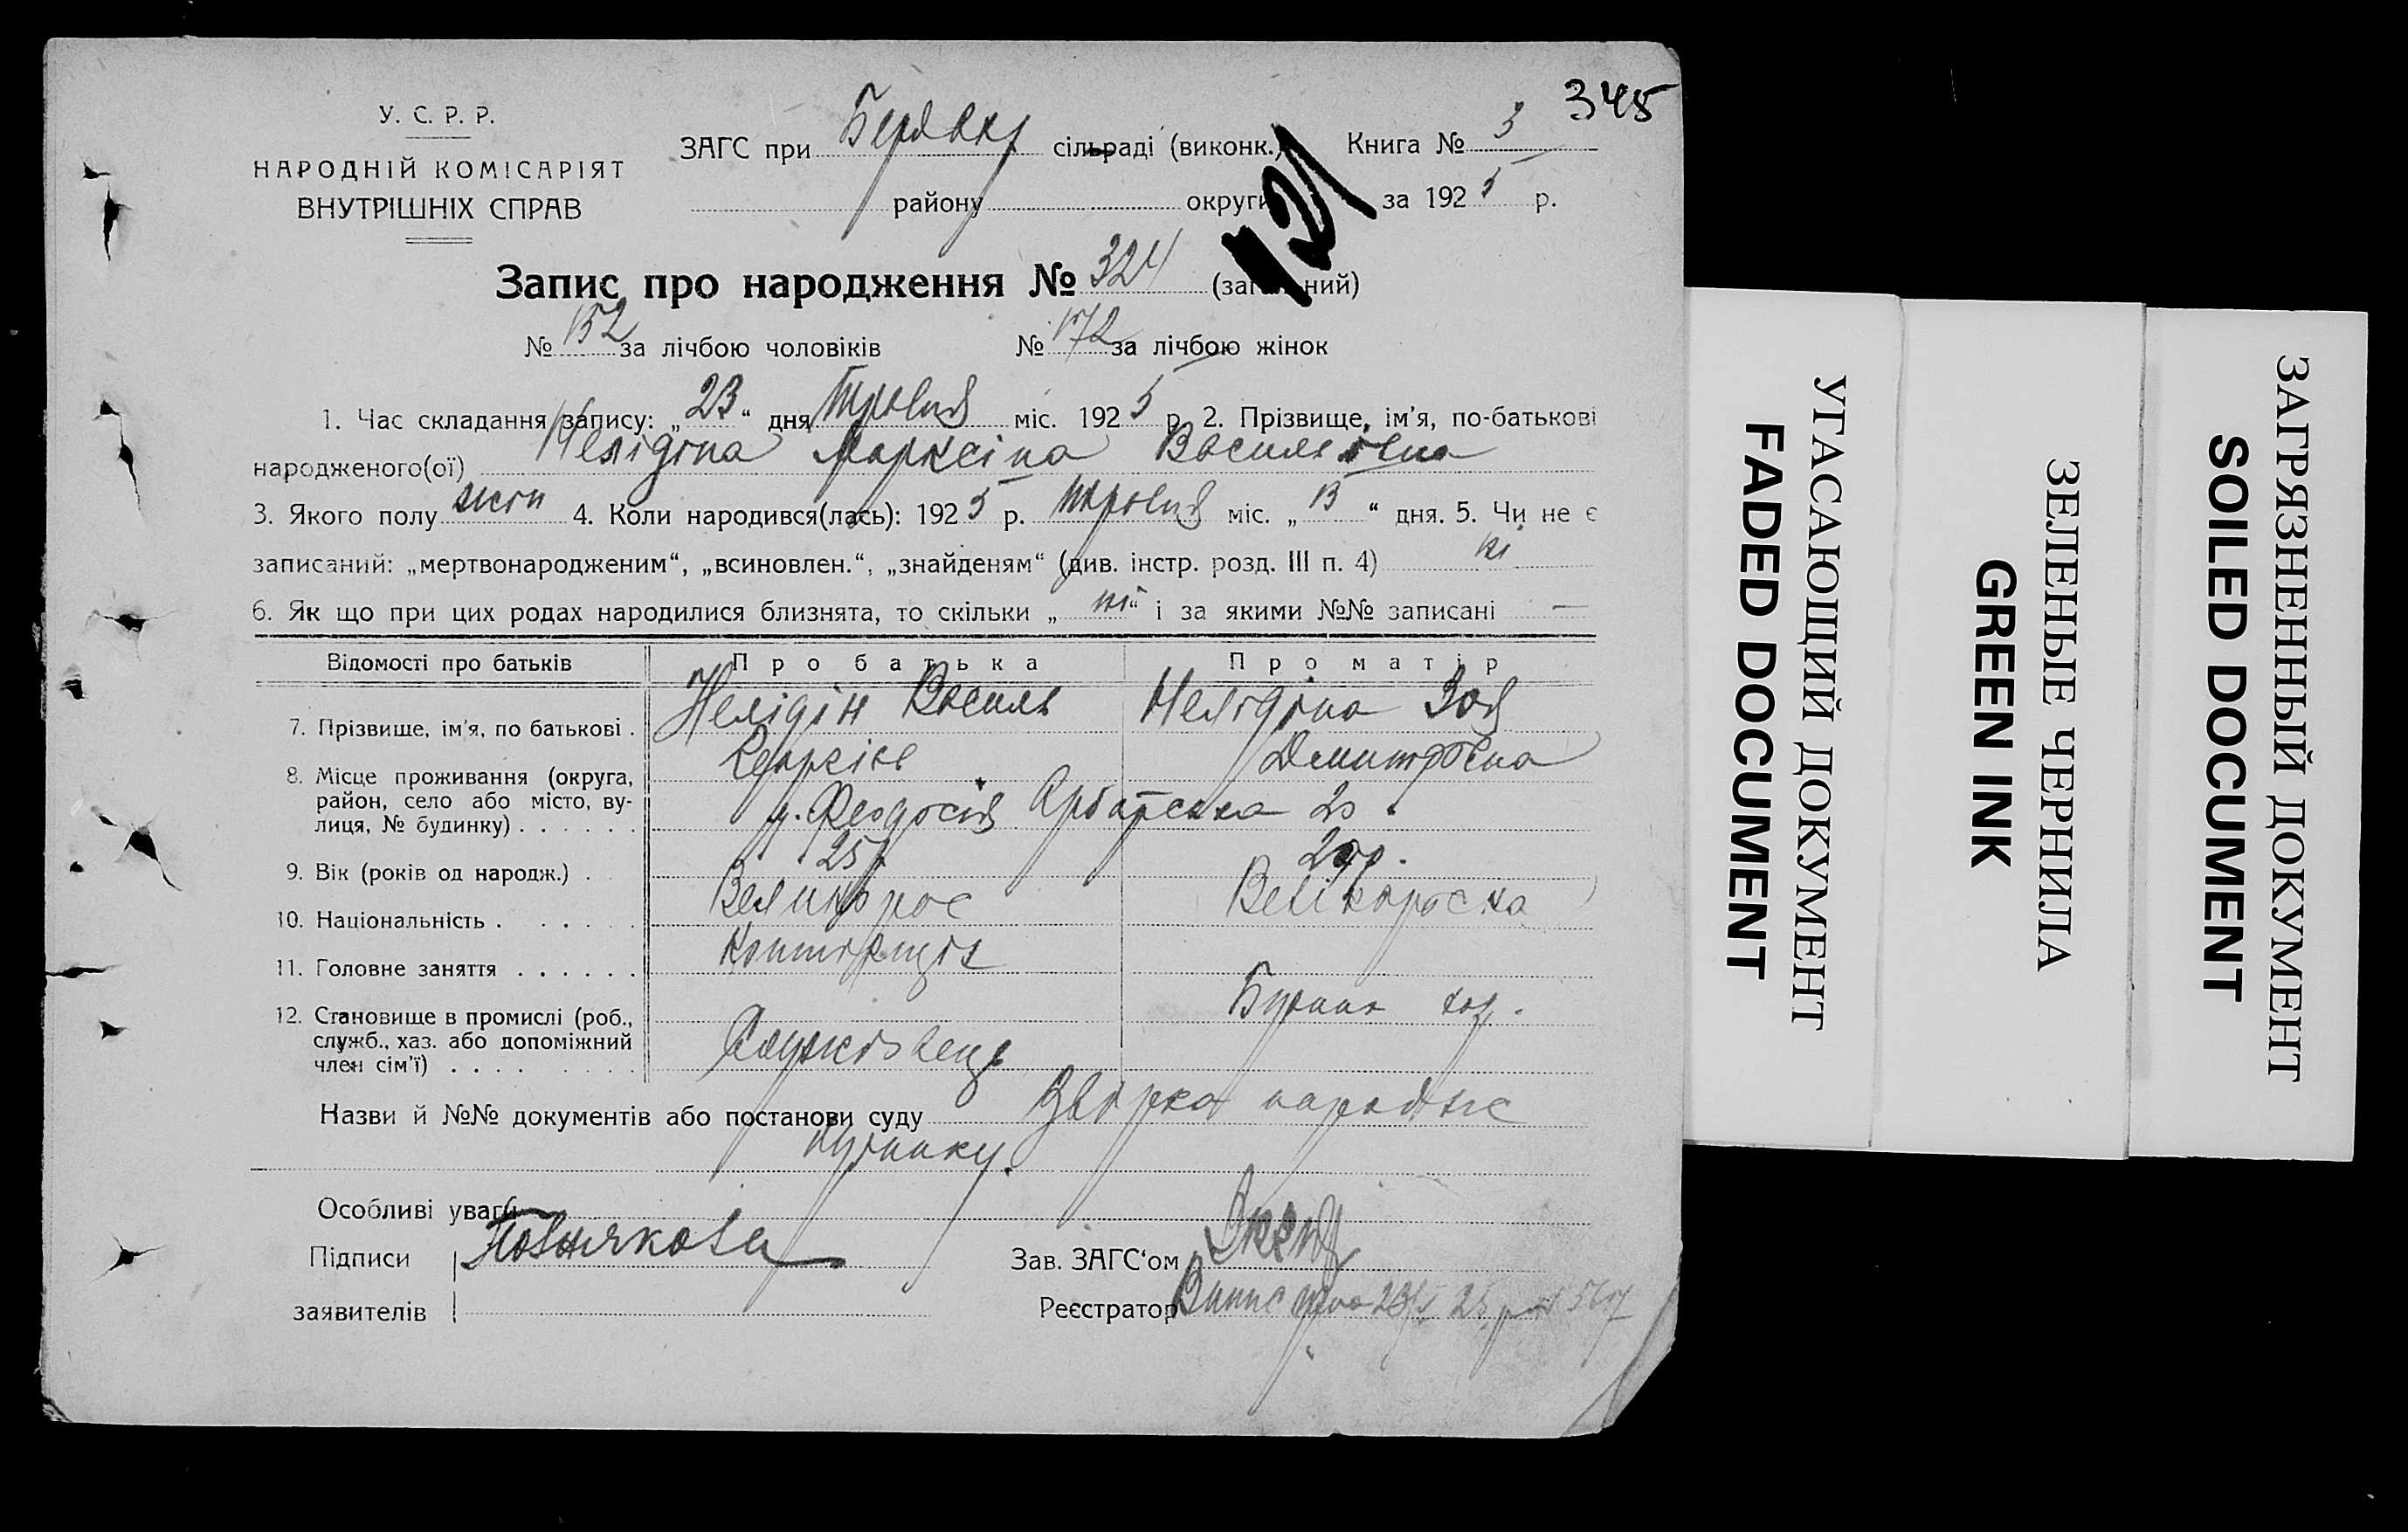 345
У. С. Р. Р.
НАРОДНІЙ КОМІСАРІЯТ
ВНУТРІШНІХ СПРАВ
ЗАГС при сільраді (виконк.) Книга № 3
району округи за 1925 р.
121
Запис про народження № 324 (загальний)
№ 152 за лічбою чоловіків № 172 за лічбою жінок
1. Час складання запису: „23“ дня травня міс. 1925 р. 2. Прізвище, ім’я, по-батькові
народженого(ої) Нелідіна Марксіна Василівна
3. Якого полу жіон 4. Коли народився(лась): 1925 р. травня міс. „15“ дня. 5. Чи не є
записаний: „мертвонародженим“, „всиновлен.“, „знайденям“ (див. інстр. розд. III п. 4) ні
6. Як що при цих родах народилися близнята, то скільки „ні“ і за якими №№ записані —
Відомості про батьків Про батька Про матір
7. Прізвище, ім’я, по батькові . Нелідін Василь Нелідіна Зоя
Димитровна
8. Місце проживання (округа,
район, село або місто, ву-
лиця, № будинку) . . . . . . м. Феодосія Арбатська
9. Вік (років од народж.) . 25
10. Національність . . . . . Великорос Великороска
11. Головне заняття . . . . . .
12. Становище в промислі (роб.,
служб., хаз. або допоміжний
член сім’ї) . . . . Службовець
Назви й №№ документів або постанови суду
будинку.
Особливі уваги
Підписи Познякова Зав. ЗАГС‘ом
заявителів Реєстратор Випис
УГАСАЮЩИЙ ДОКУМЕНТ
FADED DOCUMENT
ЗЕЛЕНЫЕ ЧЕРНИЛА
GREEN INK
ЗАГРЯЗНЕННЫЙ ДОКУМЕНТ
SOILED DOCUMENT